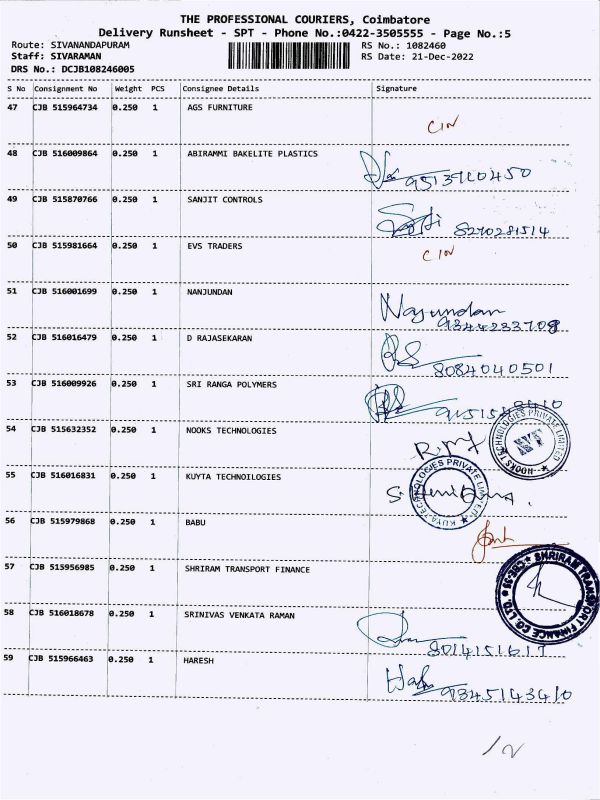 THE PROFESSIONAL COURIERS, Coimbatore
Delivery Runsheet - SPT - Phone No.:0422-3505555 - Page No.:5
Route: SIVANANDAPURAM RS No.: 1082460
Staff: SIVARAMAN RS Date: 21-Dec-2022
DRS No.: DCJB108246005
S No Consignment No Weight PCS Consignee Details Signature
47 CJB 515964734 0.250 1 AGS FURNITURE
CIN
48 CJB 516009864 0.250 1 ABIRAMMI BAKELITE PLASTICS
49 CJB 515870766 0.250 1 SANJIT CONTROLS
8270281514
50 CJB 515981664 0.250 1 EVS TRADERS
CIN
51 CJB 516001699 0.250 1 NANJUNDAN
52 CJB 516016479 0.250 1 D RAJASEKARAN
8084040501
53 CJB 516009926 0.250 1 SRI RANGA POLYMERS
54 CJB 515632352 0.250 1 NOOKS TECHNOLOGIES
NOOKS TECHNOLOGIES PRIVATE LIMITED
55 CJB 516016831 0.250 1 KUYTA TECHNOILOGIES
56 CJB 515979868 0.250 1 BABU
57 CJB 515956985 0.250 1 SHRIRAM TRANSPORT FINANCE
SHRIRAM TRANSPORT FINANCE CO. LTD.
58 CJB 516018678 0.250 1 SRINIVAS VENKATA RAMAN
8014151617
59 CJB 515966463 0.250 1 HARESH
9345143410